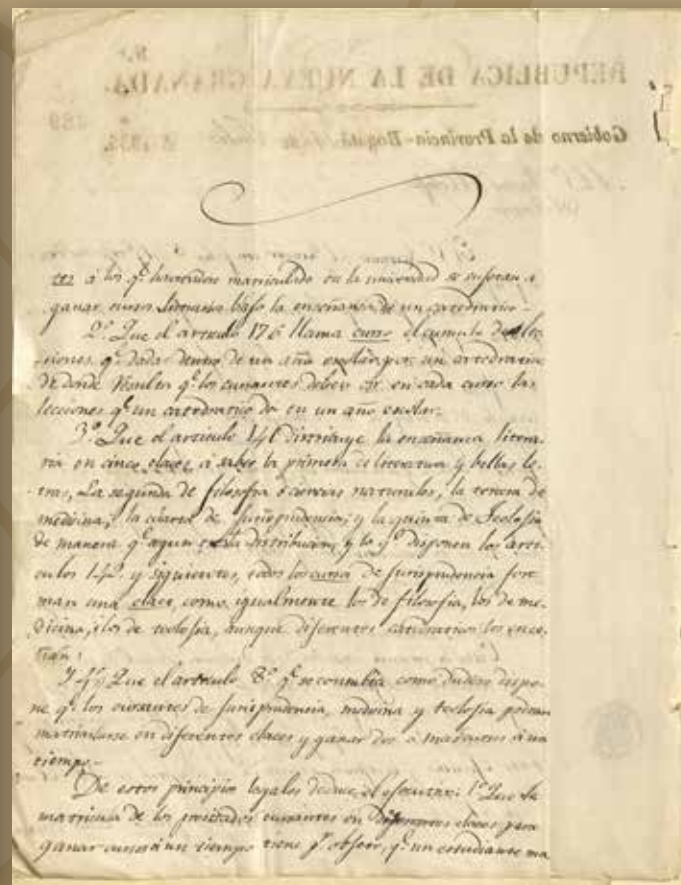 REPUBLICA DE LA NUEVA GRANADA.
Gobierno de la Provincia-Bogotá
tes á los qe. habiendose matriculado en la universidad se sujetan á
ganar cursos literarios bajo la enseñanza de un catedratico.-
2º. Que el articulo 176 llama curso el cumulo de lec
ciones qe. dadas dentro de un año esplica por un catedratico
de donde resulta qe. los cursantes deben oir en cada curso las
lecciones qe. un catedratico da en un año escolar.
3º. Que el articulo 146 distribuye la enseñanza litera-
ria en cinco clases, á saber la primera de literatura y bellas le-
tras, La segunda de filosofia ó ciencias naturales, la tercera de
medicina, la cuarta de Jurisprudencia; y la quinta de Teolosia
de manera qe. segun esta distribucion, y lo qe. disponen los arti-
culos y siguientes, todos los cursos de Jurisprudencia for-
man una clase, como igualmente los de filosofia, los de me-
dicina, i los de teolosia, aunque diferentes catedraticos los ense-
ñan:
Y 4º. Que el articulo 8º. qe. se consulta como dudoso dispo-
ne qe. los cursantes de Jurisprudencia, medicina y teolosia podran
matricularse en diferentes clases y ganar dos o mas cursos á un
tiempo.-
De estos principios legales deduce el esponente: 1º. Que la
matricula de los precitados cursantes en diferentes clases para
ganar cursos á un tiempo tiene pr. objeto, qe. un estudiante ma